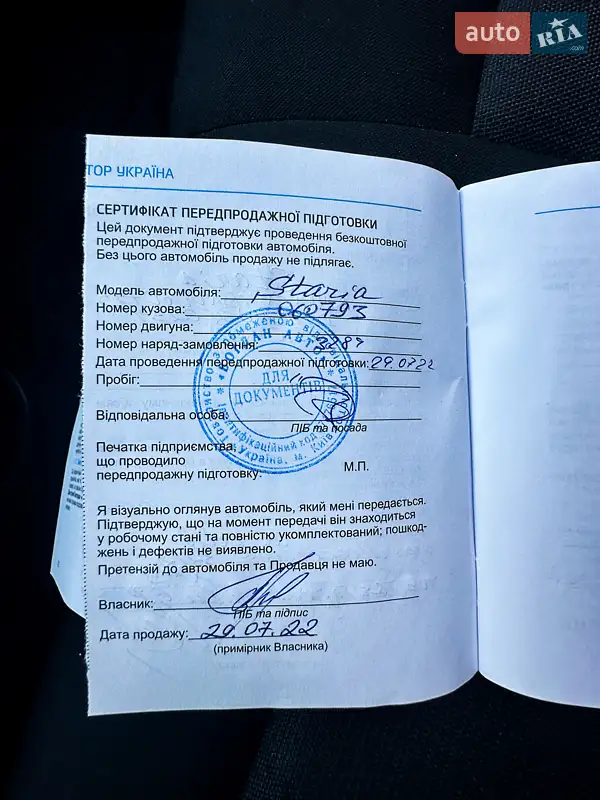 auto RIA.com
ТОР УКРАЇНА
СЕРТИФІКАТ ПЕРЕДПРОДАЖНОЇ ПІДГОТОВКИ
Цей документ підтверджує проведення безкоштовної
передпродажної підготовки автомобіля.
Без цього автомобіль продажу не підлягає.
Модель автомобіля: Staria
Номер кузова: 060793
Номер двигуна:
Номер наряд-замовлення:
Дата проведення передпродажної підготовки: 29.0722
Пробіг:
Відповідальна особа:
ПІБ та посада
Печатка підприємства,
що проводило
передпродажну підготовку:
М.П.
БОГДАН АВТО
ДЛЯ
ДОКУМЕНТІВ
Україна, м. Київ
Я візуально оглянув автомобіль, який мені передається.
Підтверджую, що на момент передачі він знаходиться
у робочому стані та повністю укомплектований; пошкод-
жень і дефектів не виявлено.
Претензій до автомобіля та Продавця не маю.
Власник:
ПІБ та підпис
Дата продажу: 29.07.22
(примірник Власника)